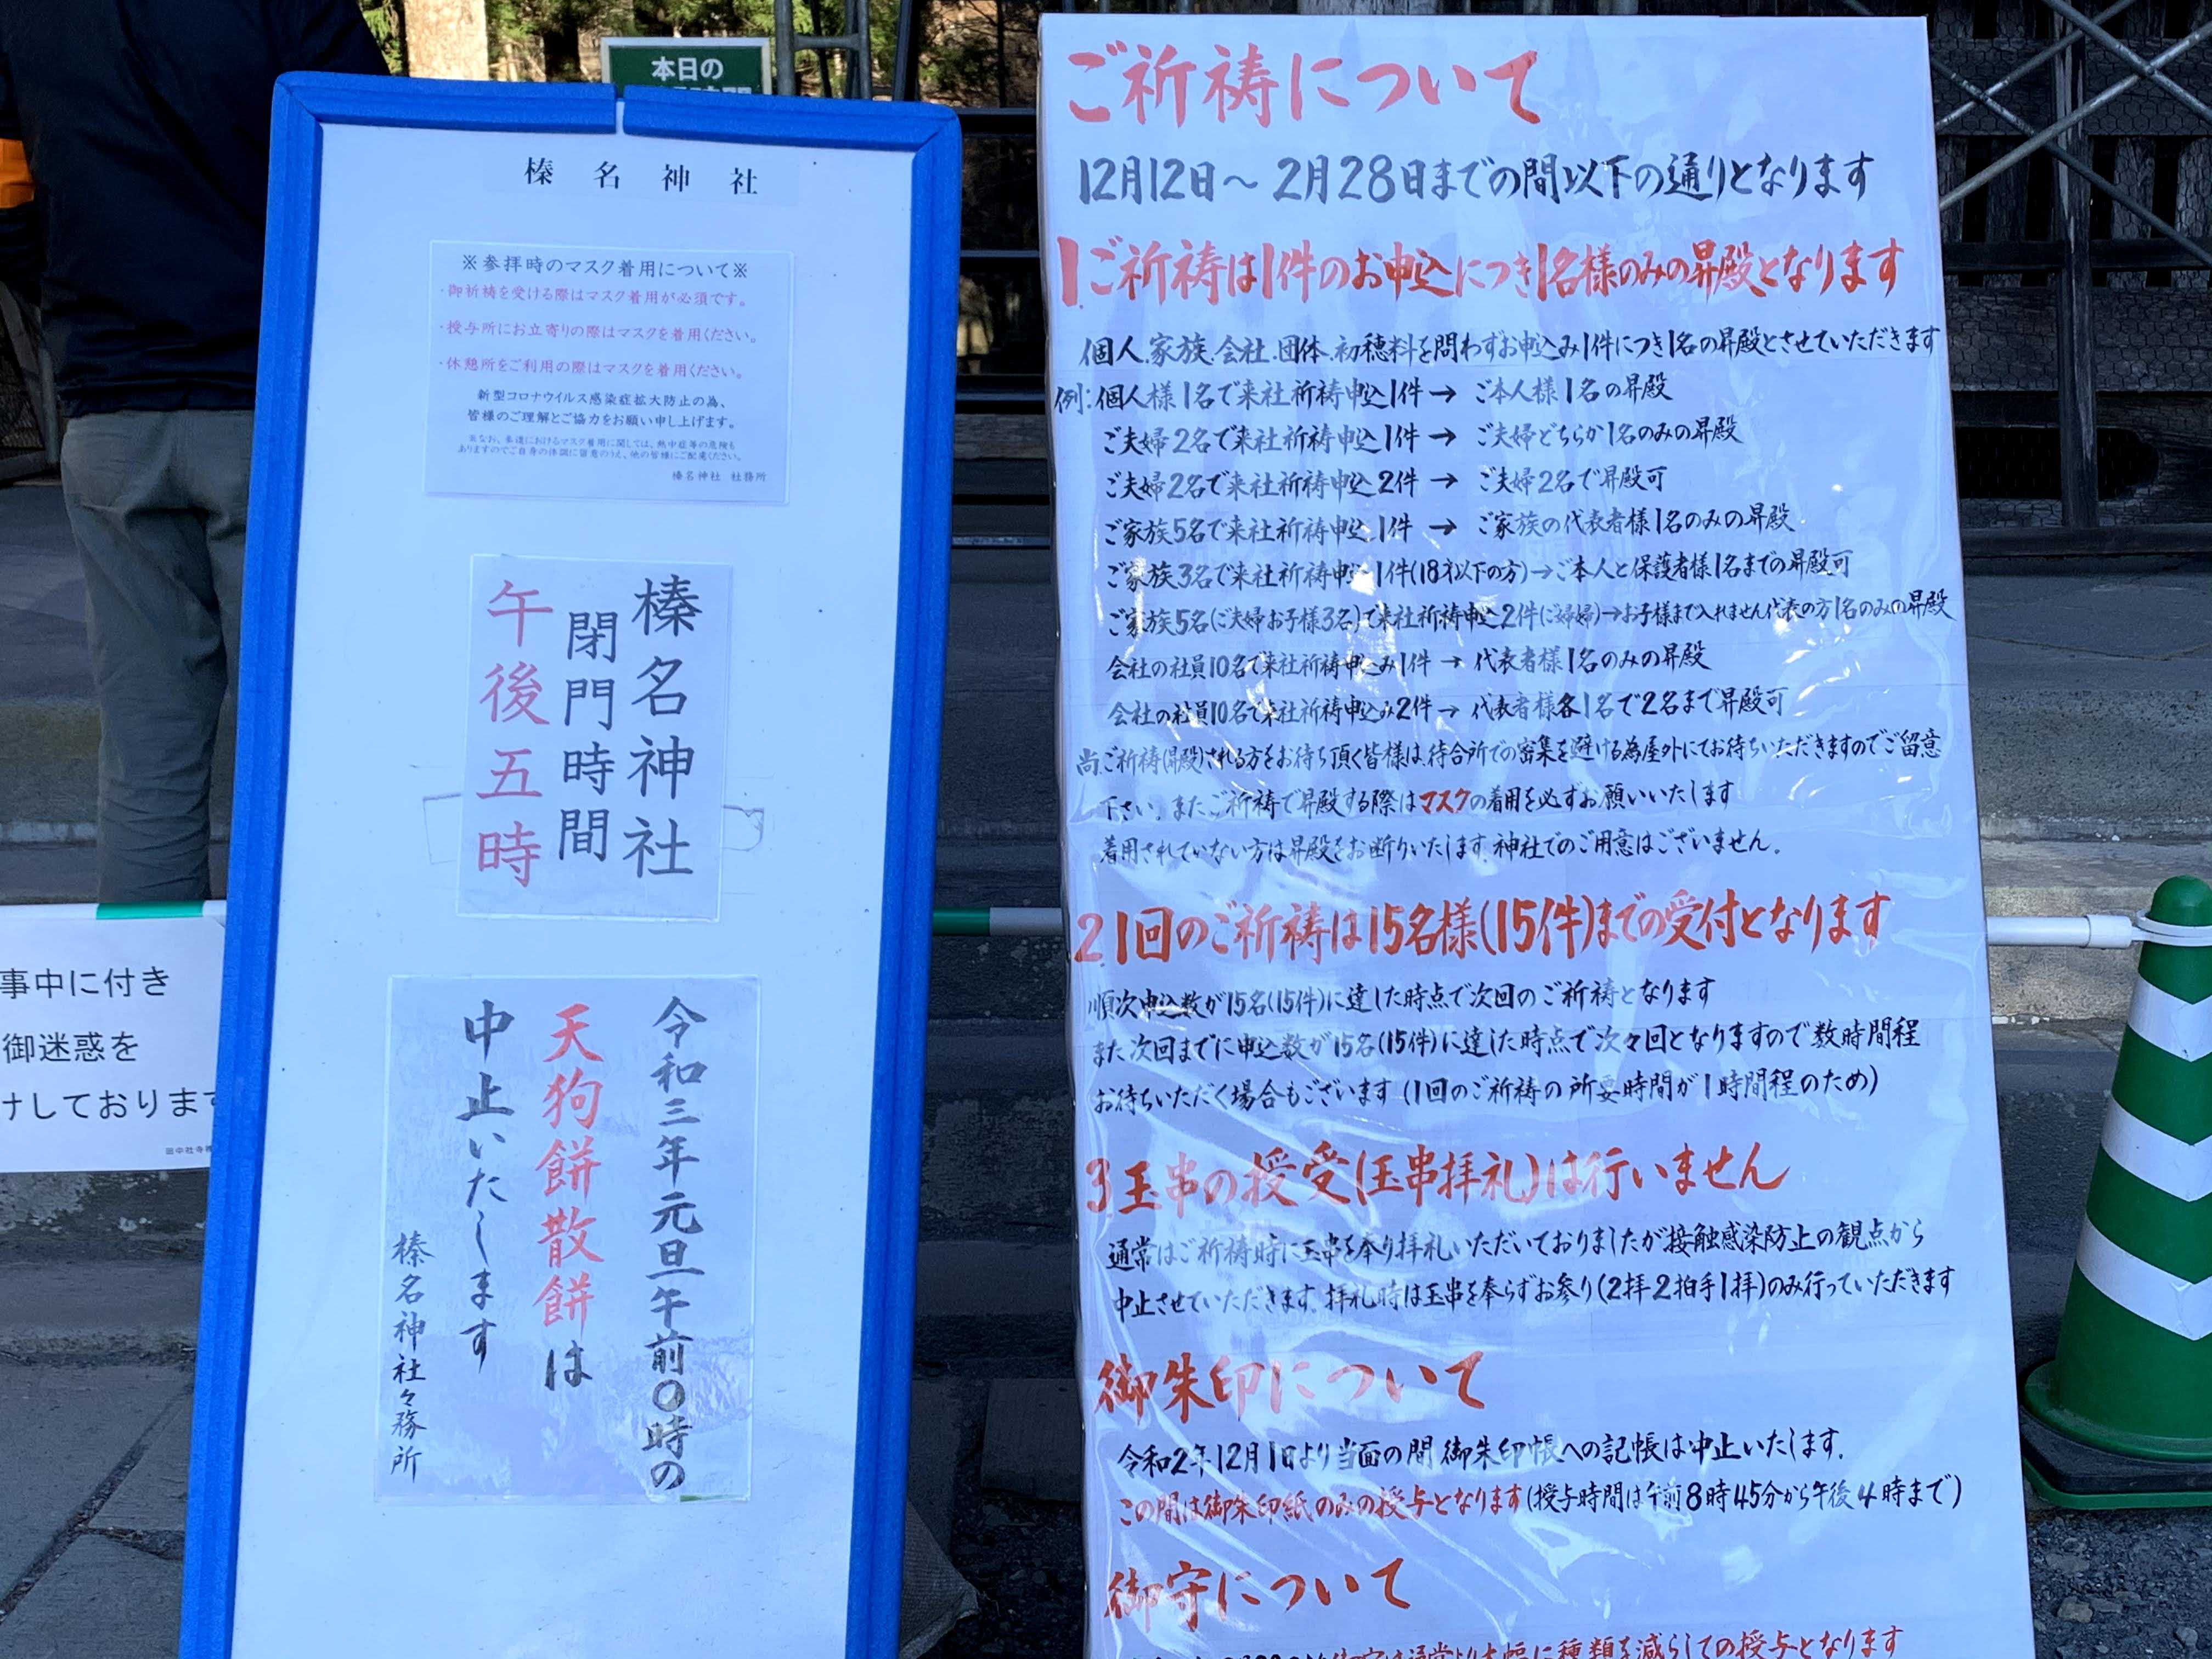 本日の
榛名神社
※参拝時のマスク着用について※
・御祈祷を受ける際はマスク着用が必須です。
・授与所にお立寄りの際はマスクを着用ください。
・休憩所をご利用の際はマスクを着用ください。
新型コロナウイルス感染症拡大防止の為、
皆様のご理解とご協力をお願い申し上げます。
※なお、参道におけるマスク着用に関しては、熱中症等の危険も
ありますのでご自身の体調に留意のうえ、他の皆様にご配慮ください。
榛名神社 社務所
榛名神社
閉門時間
午後五時
令和三年元旦午前〇時の
天狗餅散餅は
中止いたします
榛名神社々務所
事中に付き
御迷惑を
けしております
田中社寺
ご祈祷について
12月12日～2月28日までの間以下の通りとなります
1.ご祈祷は1件のお申込につき1名様のみの昇殿となります
個人.家族.会社.団体.初穂料を問わずお申込み1件につき1名の昇殿とさせていただきます
例:個人様1名で来社祈祷申込1件→ご本人様1名の昇殿
ご夫婦2名で来社祈祷申込1件→ご夫婦どちらか1名のみの昇殿
ご夫婦2名で来社祈祷申込2件→ご夫婦2名で昇殿可
ご家族5名で来社祈祷申込1件→ご家族の代表者様1名のみの昇殿
ご家族3名で来社祈祷申込1件(18才以下の方)→ご本人と保護者様1名までの昇殿可
ご家族5名(ご夫婦お子様3名)で来社祈祷申込2件(ご婦婦)→お子様まで入れません代表の方1名のみの昇殿
会社の社員10名で来社祈祷申込み1件→代表者様1名のみの昇殿
会社の社員10名で来社祈祷申込み2件→代表者様各1名で2名まで昇殿可
尚.ご祈祷(昇殿)される方をお待ち頂く皆様は.待合所での密集を避ける為屋外にてお待ちいただきますのでご留意
下さい。またご祈祷で昇殿する際はマスクの着用を必ずお願いいたします
着用されていない方は昇殿をお断りいたします.神社でのご用意はございません。
2.1回のご祈祷は15名様(15件)までの受付となります
順次申込数が15名(15件)に達した時点で次回のご祈祷となります
また次回までに申込数が15名(15件)に達した時点で次々回となりますので数時間程
お待ちいただく場合もございます(1回のご祈祷の所要時間が1時間程のため)
3玉串の授受(玉串拝礼)は行いません
通常はご祈祷時に玉串を奉り拝礼いただいておりましたが接触感染防止の観点から
中止させていただきます.拝礼時は玉串を奉らずお参り(2拝2拍手1拝)のみ行っていただきます
御朱印について
令和2年12月1日より当面の間御朱印帳への記帳は中止いたします.
この間は御朱印紙のみの授与となります(授与時間は午前8時45分から午後4時まで)
御守について
御守は通常より大幅に種類を減らしての授与となります